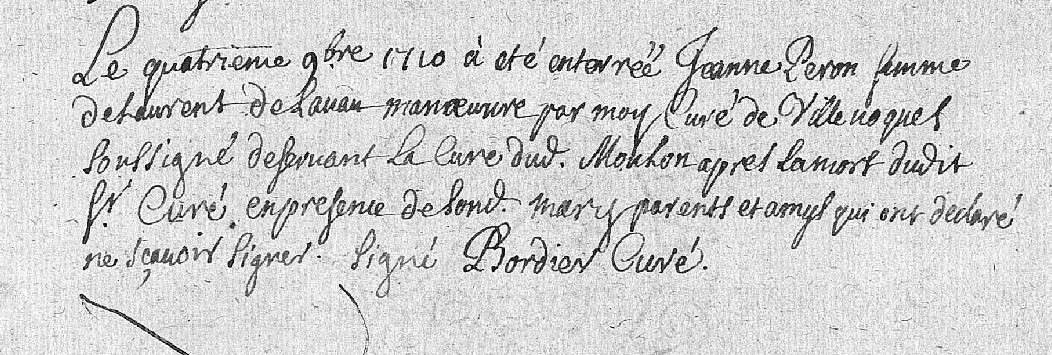 Le quatrième 9bre 1710 à eté enterréé Jeanne Peron femme
de Laurent de Lavau manœuvre par moy Curé de Villenoquel
soussigné deservant la Cure dud. Mouhon apres la mort dudit
Sr. Curé en presence de sond. mary parents et amys qui ont declaré
ne sçavoir signer. signé Bordier Curé.